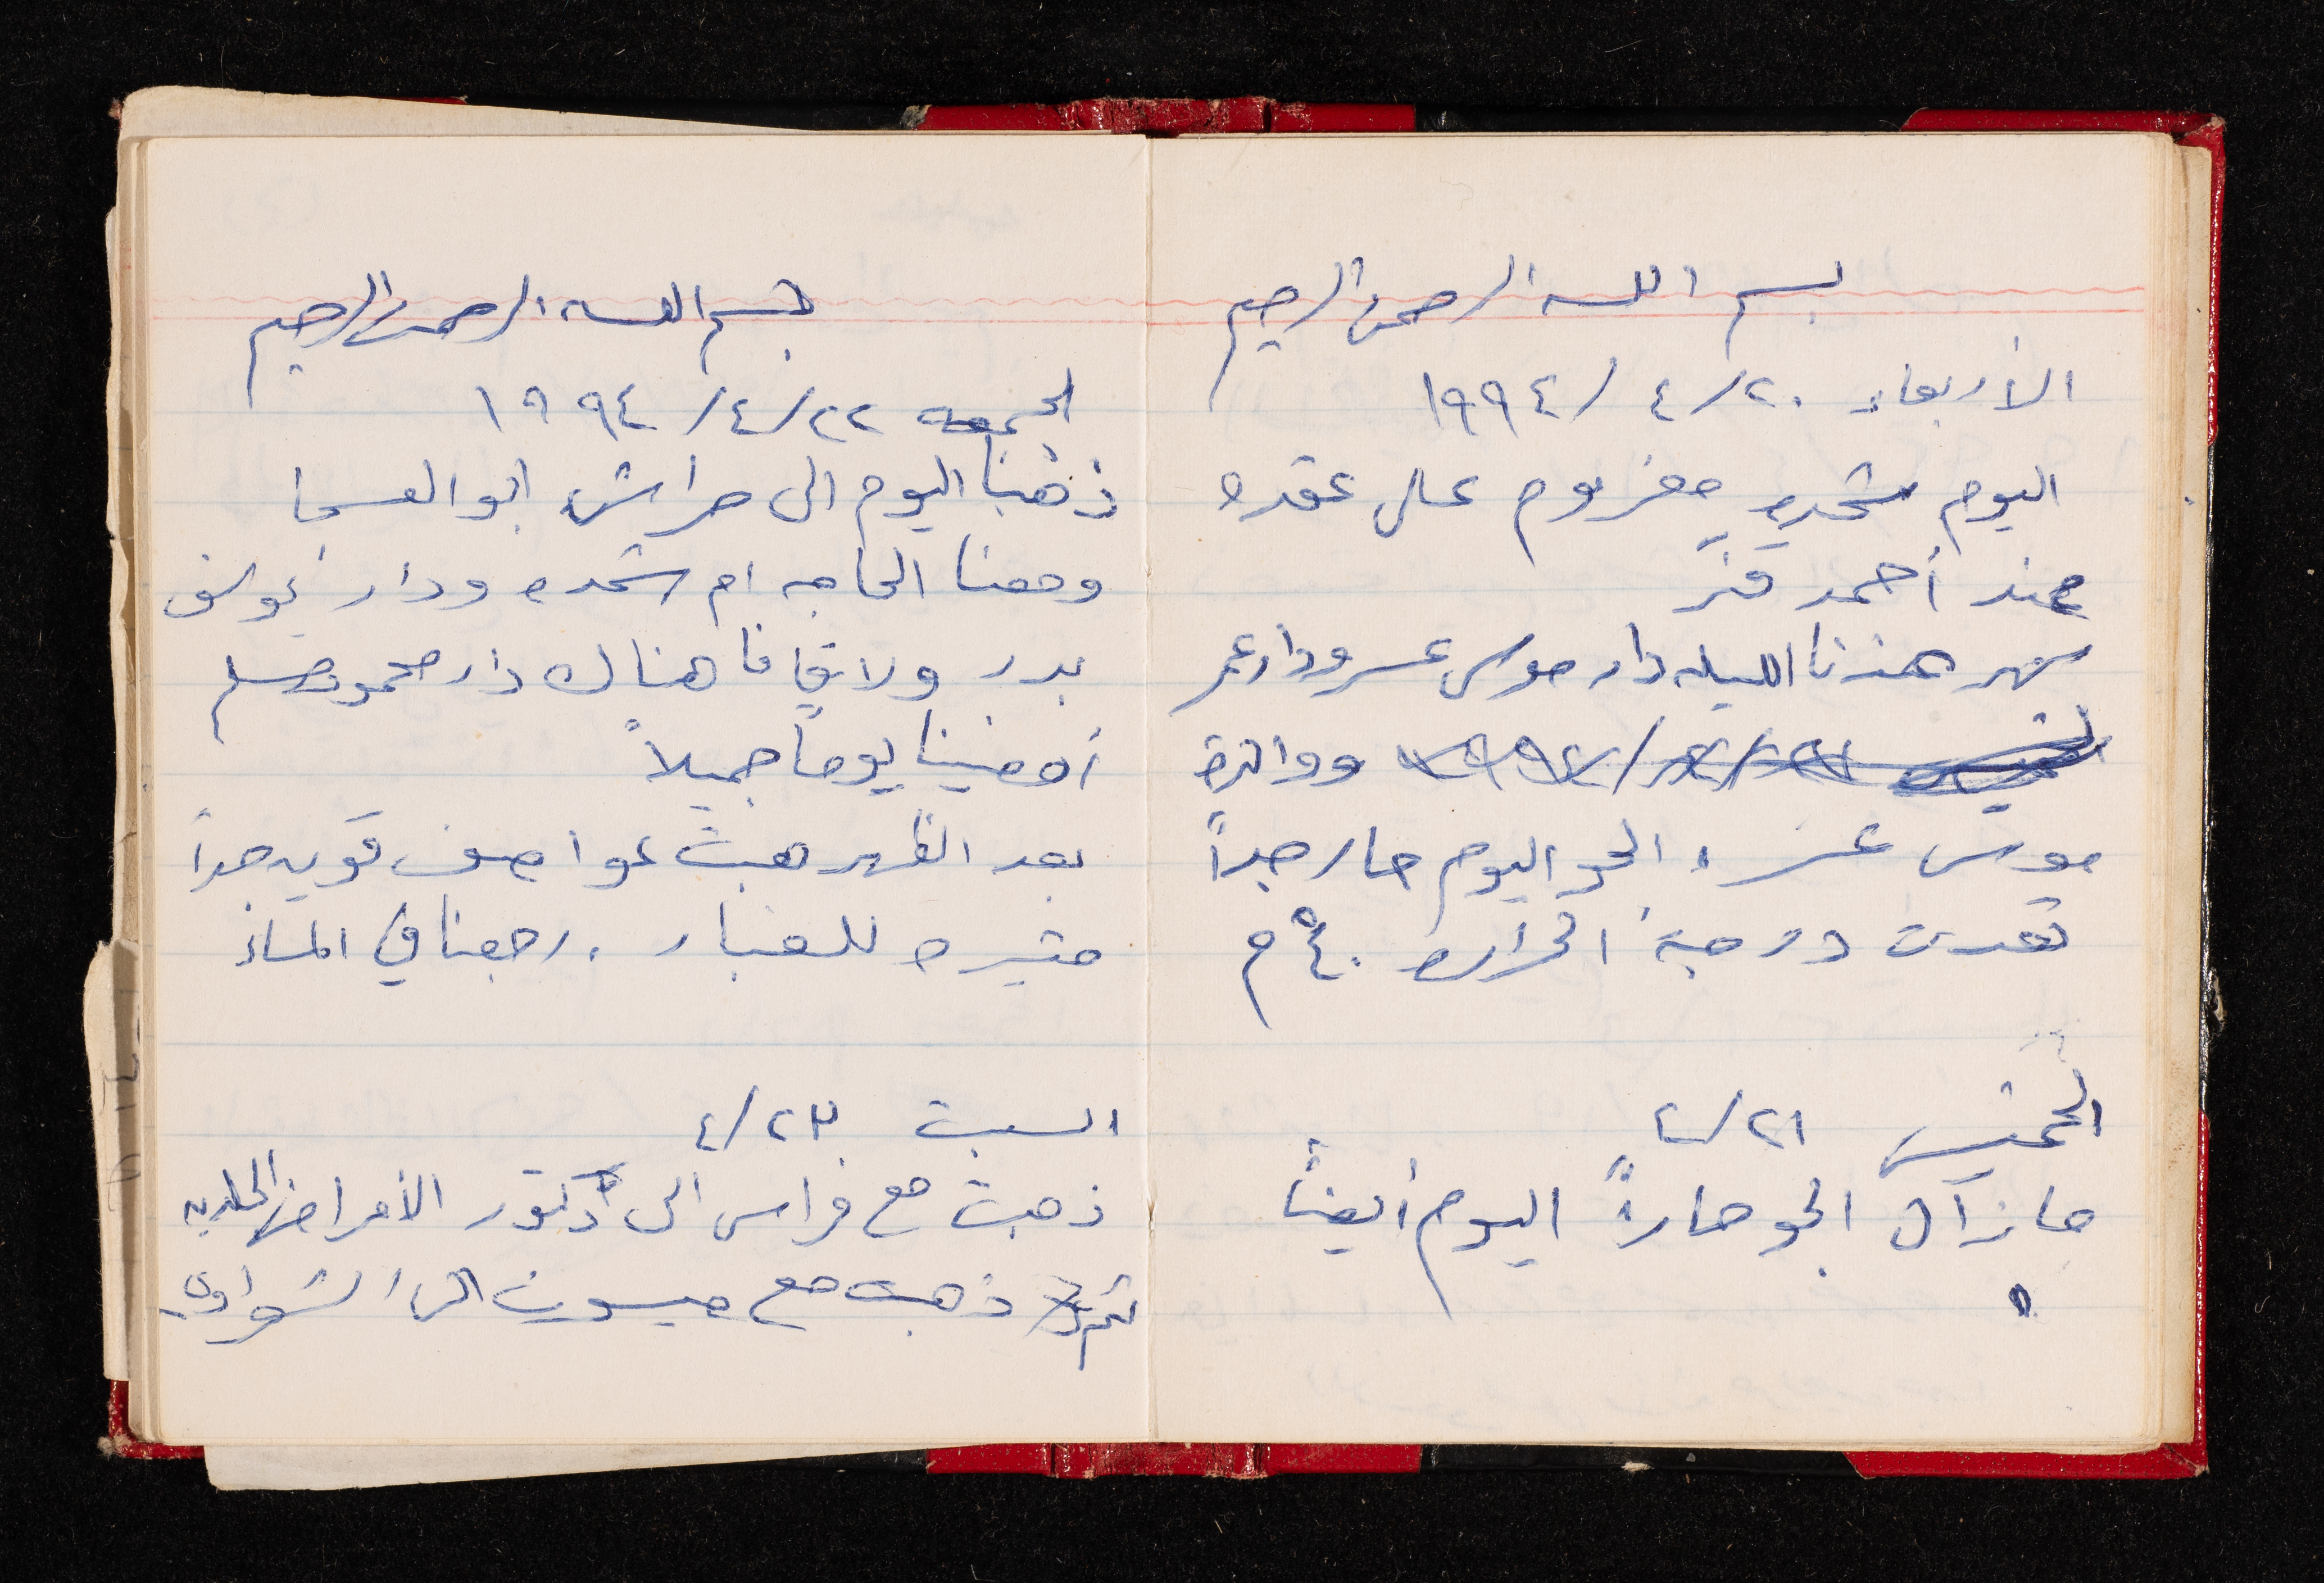 بسم الله الرحمن الرحيم
الأربعاء ٢٠/ ٤ /١٩٩٤
اليوم شحده معزوم على عقده
عند أحمد
سهر عندنا الليله دار موسى عسر ودار عمر
الخميس ٢١/٤/١٩٩٤ ووالدة
موسى عسر، الجو اليوم حار جداً
تعدت درجة الحراره ٤٠°م
الخميس ٢١/٤
ما زال الجو حاراً اليوم أيضاً
بسم الله الرحمن الرحيم
الجمعه ٢٢/٤/١٩٩٤
ذهبنا اليوم الى حراش ابو العسجا
ومعنا الحاجه ام شحده ودار يوسف
بدر ولاقانا هناك دار محمود مسلم
أمضينا يوماً جميلاً
بعد الظهر هبت عواصف قويه جداً
مثيره للغبار. رجعنا في المساء
السبت ٢٣/٤
ذهبت مع فراس الى دكتور الأمراض الجلديه
ثم ذهبت مع ميسون الى الشواوي